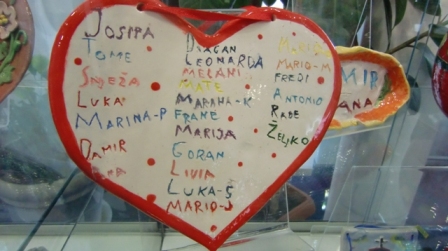 JOSIPA
TOME
SNJEŽA
LUKA
MARINA-P
DAMIR
DRAGAN
LEONARDA
MELANI
MATE
MARANA-K
FRANE
MARIJA
GORAN
LIVIA
LUKA-Š
MARIO-J
MARIO-M
FREDI
ANTONIO
RADE
ŽELJKO
MIR
ANA